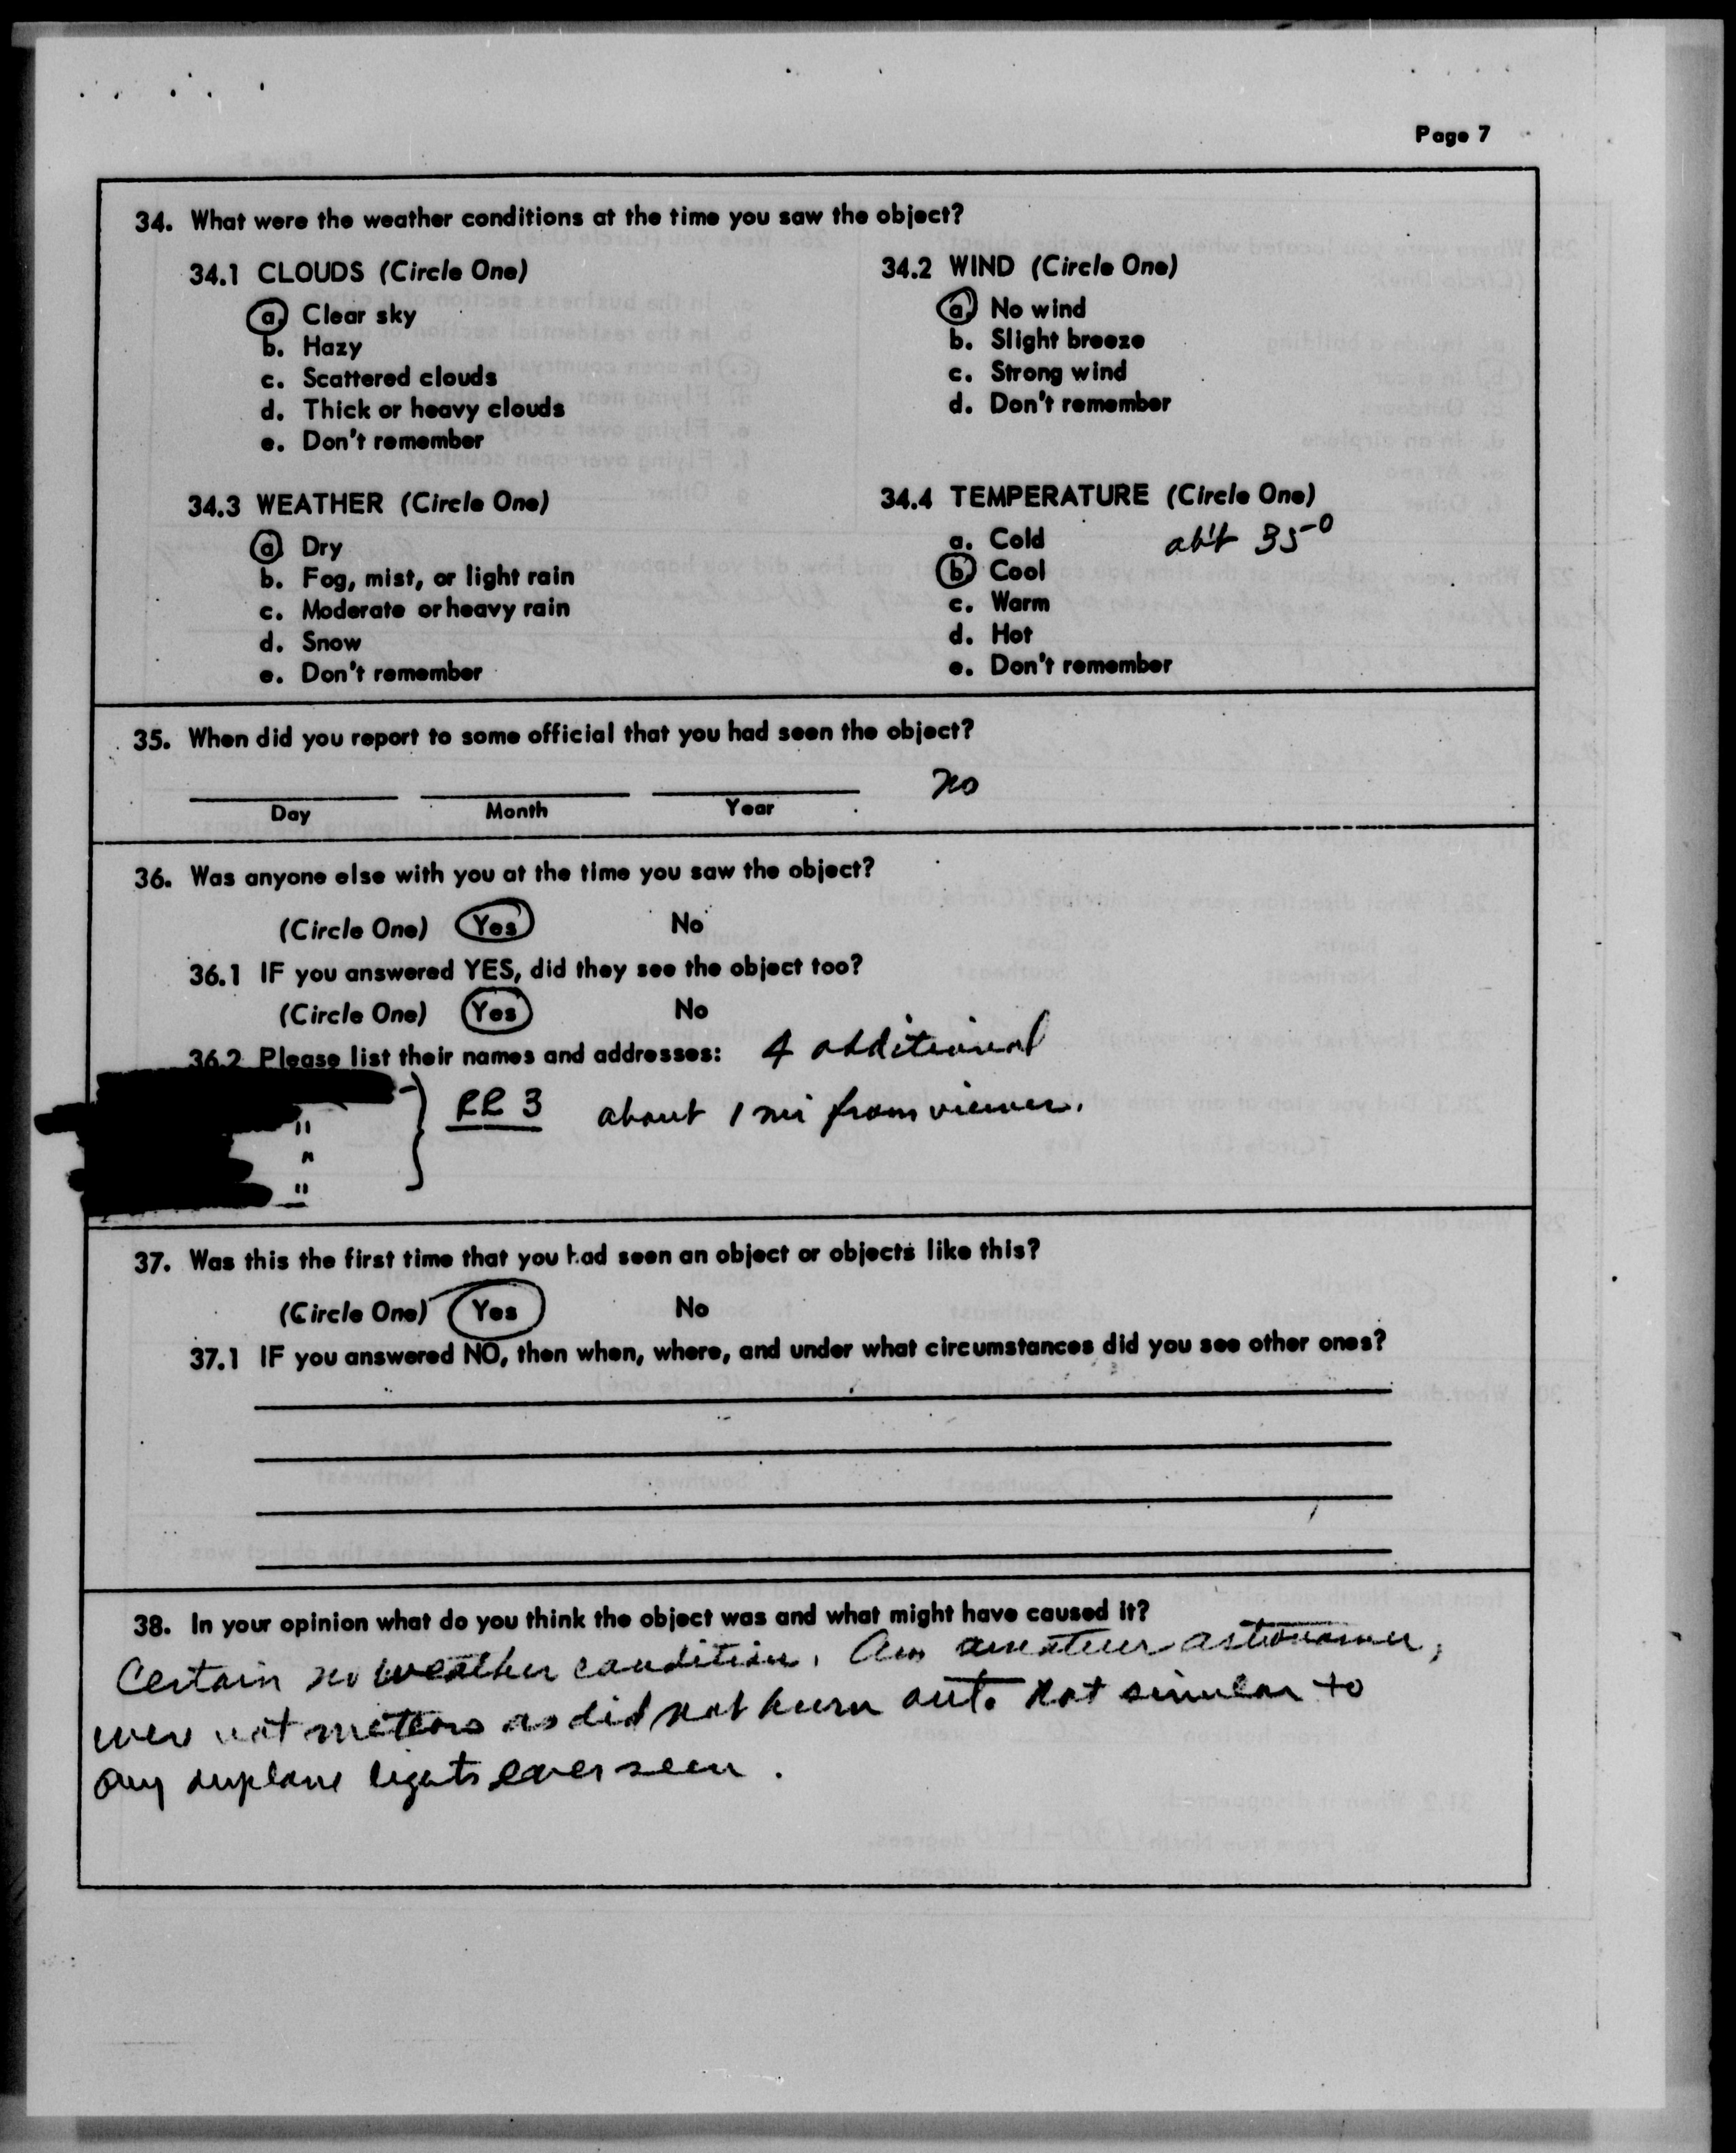 Page 7
34. What were the weather conditions at the time you saw the object?
34.1 CLOUDS (Circle One)
a. Clear sky
b. Hazy
c. Scattered clouds
d. Thick or heavy clouds
e. Don't remember
34.2 WIND (Circle One)
a. No wind
b. Slight breeze
c. Strong wind
d. Don't remember
34.3 WEATHER (Circle One)
a. Dry
b. Fog, mist, or light rain
c. Moderate or heavy rain
d. Snow
e. Don't remember
34.4 TEMPERATURE (Circle One)
a. Cold
abt 35°
b. Cool
c. Warm
d. Hot
e. Don't remember
35. When did you report to some official that you had seen the object?
no
Day Month Year
36. Was anyone else with you at the time you saw the object?
(Circle One) Yes No
36.1 IF you answered YES, did they see the object too?
(Circle One) Yes No
36.2 Please list their names and addresses: 4 additional
RR 3 about 1 mi from viewer.
"
"
"
37. Was this the first time that you had seen an object or objects like this?
(Circle One) Yes No
37.1 IF you answered NO, then when, where, and under what circumstances did you see other ones?
38. In your opinion what do you think the object was and what might have caused it?
Certain no weather condition. Am amateur astronomer,
were not meteors as did not burn out. Not similar to
any airplane lights ever seen.